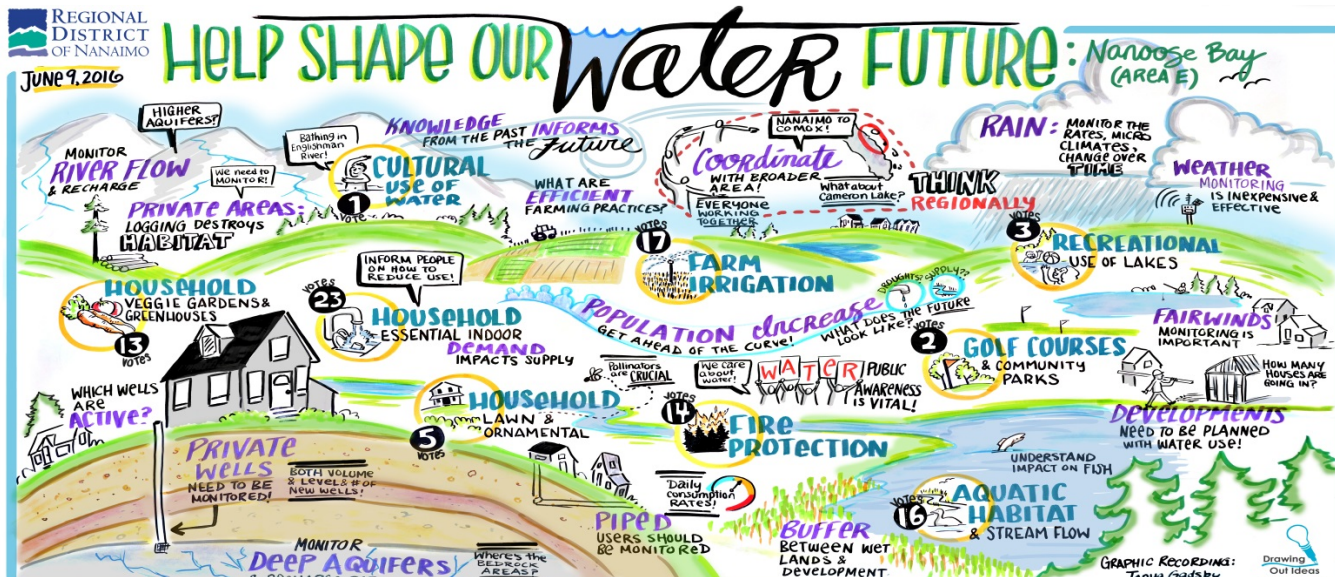 REGIONAL
DISTRICT
OF NANAIMO
JUNE 9, 2016
HELP SHAPE OUR Water FUTURE:
Nanoose Bay
(AREA E)
HIGHER
AQUIFERS?
MONITOR
RIVER FLOW
& RECHARGE
We need to
MONITOR!
PRIVATE AREAS:
LOGGING DESTROYS
HABITAT
Bathing in
Englishman
River!
CULTURAL
USE OF
WATER
1
VOTE
KNOWLEDGE
FROM THE PAST INFORMS
THE Future
WHAT ARE
EFFICIENT
FARMING PRACTICES?
NANAIMO TO
COMOX!
Coordinate
WITH BROADER
AREA!
EVERYONE
WORKING
TOGETHER
What about
Cameron Lake?
THINK
REGIONALLY
RAIN: MONITOR THE
RATES, MICRO
CLIMATES,
CHANGE OVER
TIME
WEATHER
MONITORING
IS INEXPENSIVE &
EFFECTIVE
VOTES
17
FARM
IRRIGATION
VOTES
3
RECREATIONAL
USE OF LAKES
HOUSEHOLD
VEGGIE GARDENS &
GREENHOUSES
13
VOTES
INFORM PEOPLE
ON HOW TO
REDUCE USE!
VOTES
23
HOUSEHOLD
ESSENTIAL INDOOR
DEMAND
IMPACTS SUPPLY
POPULATION Increase
GET AHEAD OF THE CURVE!
DROUGHTS? SUPPLY??
WHAT DOES THE FUTURE
LOOK LIKE?
VOTES
2
GOLF COURSES
& COMMUNITY
PARKS
FAIRWINDS
MONITORING IS
IMPORTANT
HOW MANY
HOUSES ARE
GOING IN?
DEVELOPMENTS
NEED TO BE PLANNED
WITH WATER USE!
WHICH WELLS
ARE
ACTIVE?
HOUSEHOLD
LAWN &
ORNAMENTAL
5
VOTES
Pollinators
are CRUCIAL
We care
about
water!
WATER
PUBLIC
AWARENESS
IS VITAL!
VOTES
14
FIRE
PROTECTION
PRIVATE
WELLS
NEED TO BE
MONITORED!
BOTH VOLUME
& LEVEL & # OF
NEW WELLS!
Daily
consumption
RATES!
PIPED
USERS SHOULD
BE MONITORED
BUFFER
BETWEEN WET
LANDS &
DEVELOPMENT
UNDERSTAND
IMPACT ON FISH
VOTES
16
AQUATIC
HABITAT
& STREAM FLOW
MONITOR
DEEP AQUIFERS
Where's the
BEDROCK
AREAS?
GRAPHIC RECORDING:
Drawing
Out Ideas